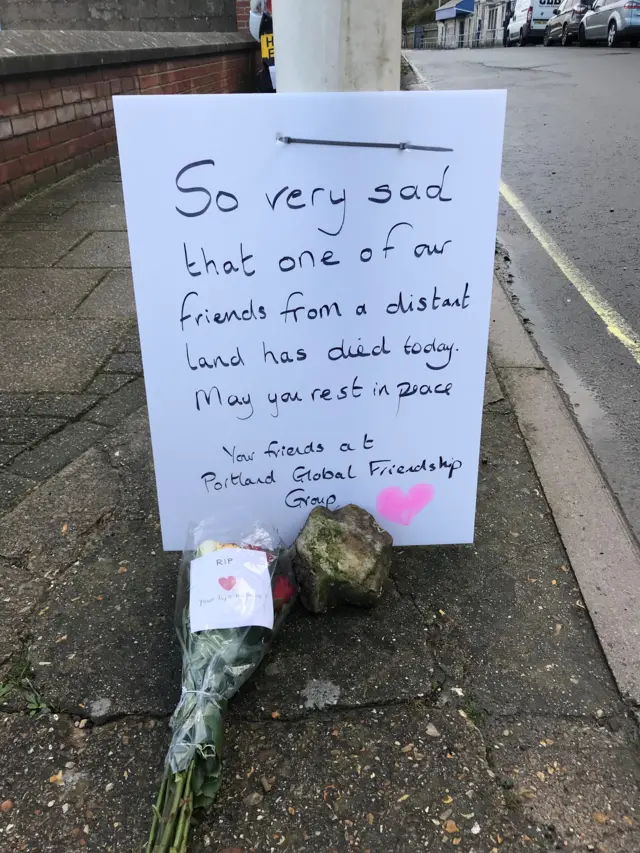 So very sad
that one of our
friends from a distant
land has died today.
May you rest in peace
Your friends at
Portland Global Friendship
Group
RIP